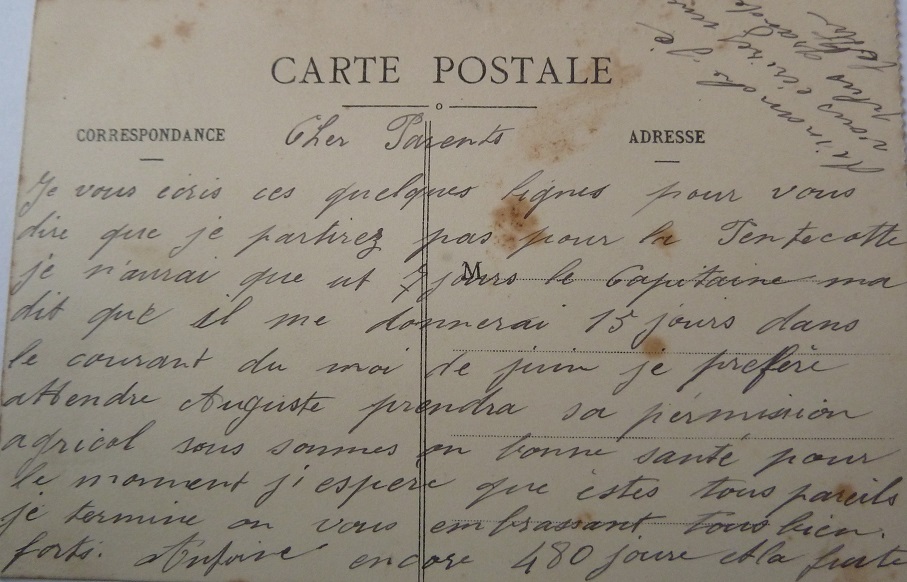 CARTE POSTALE
CORRESPONDANCE
ADRESSE
M
Cher Parents
Je vous écris ces quelques lignes pour vous
dire que je partirez pas pour la Pentecotte
je n'aurai que ut 7 jours le Capitaine ma
dit que il me donnerai 15 jours dans
le courant du moi de juin je prefère
attendre Auguste prendra sa permission
agricol sous sommes on bonne santé pour
le moment j'espere que êstes tous pareils
je termine on vous embrassant tous bien
forts. Antoine encore 480 jours et la
Dimanche je
vous écrirez une
plus grande